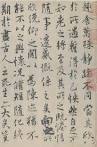 趣舍萬殊靜躁不同當其欣
於所遇暫得於己怏然自足不
知老之將至及其所之既惓情
隨事遷感慨係之矣向之所
欣俛仰之間以為陳迹猶不
能不以之興懷況脩短隨化終
期於盡古人云死生亦大矣豈